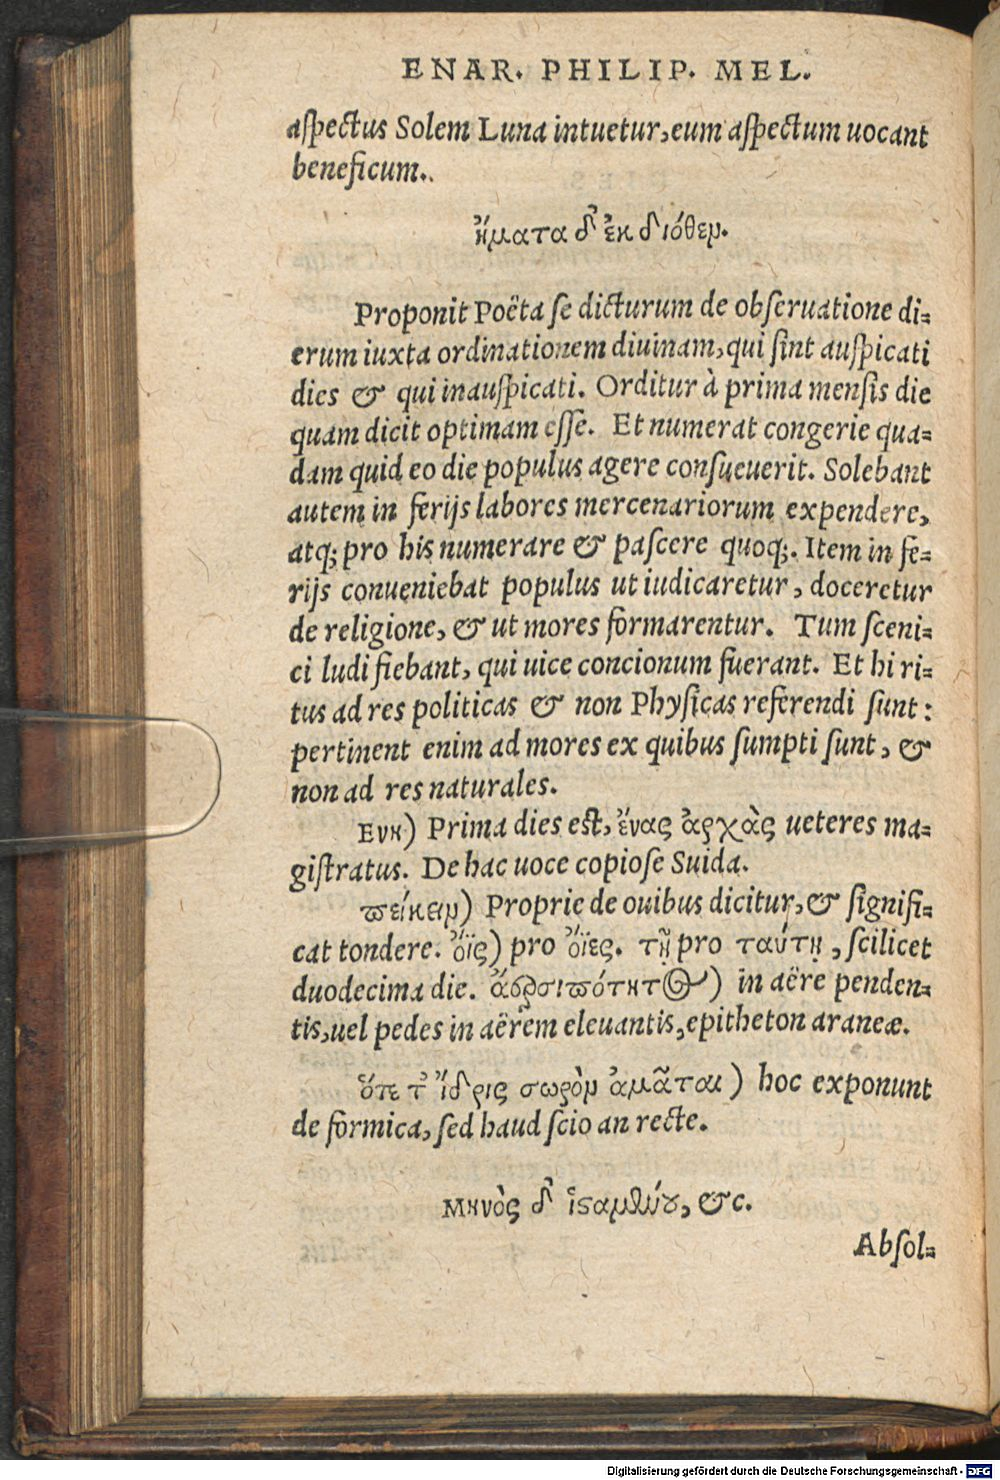 ENAR. PHILIP. MEL.
aſpectus Solem Luna intuetur, eum aſpectum uocant
beneficum.
ἤματα δ' ἐκ διόθεν.
Proponit Poëta ſe dicturum de obſeruatione di-
erum iuxta ordinationem diuinam, qui ſint auſpicati
dies & qui inauſpicati. Orditur à prima menſis die
quam dicit optimam eſſe. Et numerat congerie qua-
dam quid eo die populus agere conſueuerit. Solebant
autem in ferijs labores mercenariorum expendere,
atq; pro his numerare & paſcere quoq;. Item in fe-
rijs conueniebat populus ut iudicaretur, doceretur
de religione, & ut mores formarentur. Tum ſceni-
ci ludi fiebant, qui uice concionum fuerant. Et hi ri-
tus ad res politicas & non Phyſicas referendi ſunt:
pertinent enim ad mores ex quibus ſumpti ſunt, &
non ad res naturales.
Ενη) Prima dies est, ἕνας ἀρχὰς ueteres ma-
giſtratus. De hac uoce copioſe Suida.
πείκειν) Proprie de ouibus dicitur, & ſignifi-
cat tondere. ὄϊς) pro ὄϊες. τῇ pro ταύτῃ, ſcilicet
duodecima die. ἀερσιπότητος) in aëre penden-
tis, uel pedes in aërem eleuantis, epitheton araneæ.
ὅτε τ' ἴδρις σωρὸν ἀμᾶται) hoc exponunt
de formica, ſed haud ſcio an recte.
Μηνὸς δ' ἱσαμένου, &c.
Abſol-
Digitalisierung gefördert durch die Deutsche Forschungsgemeinschaft - DFG